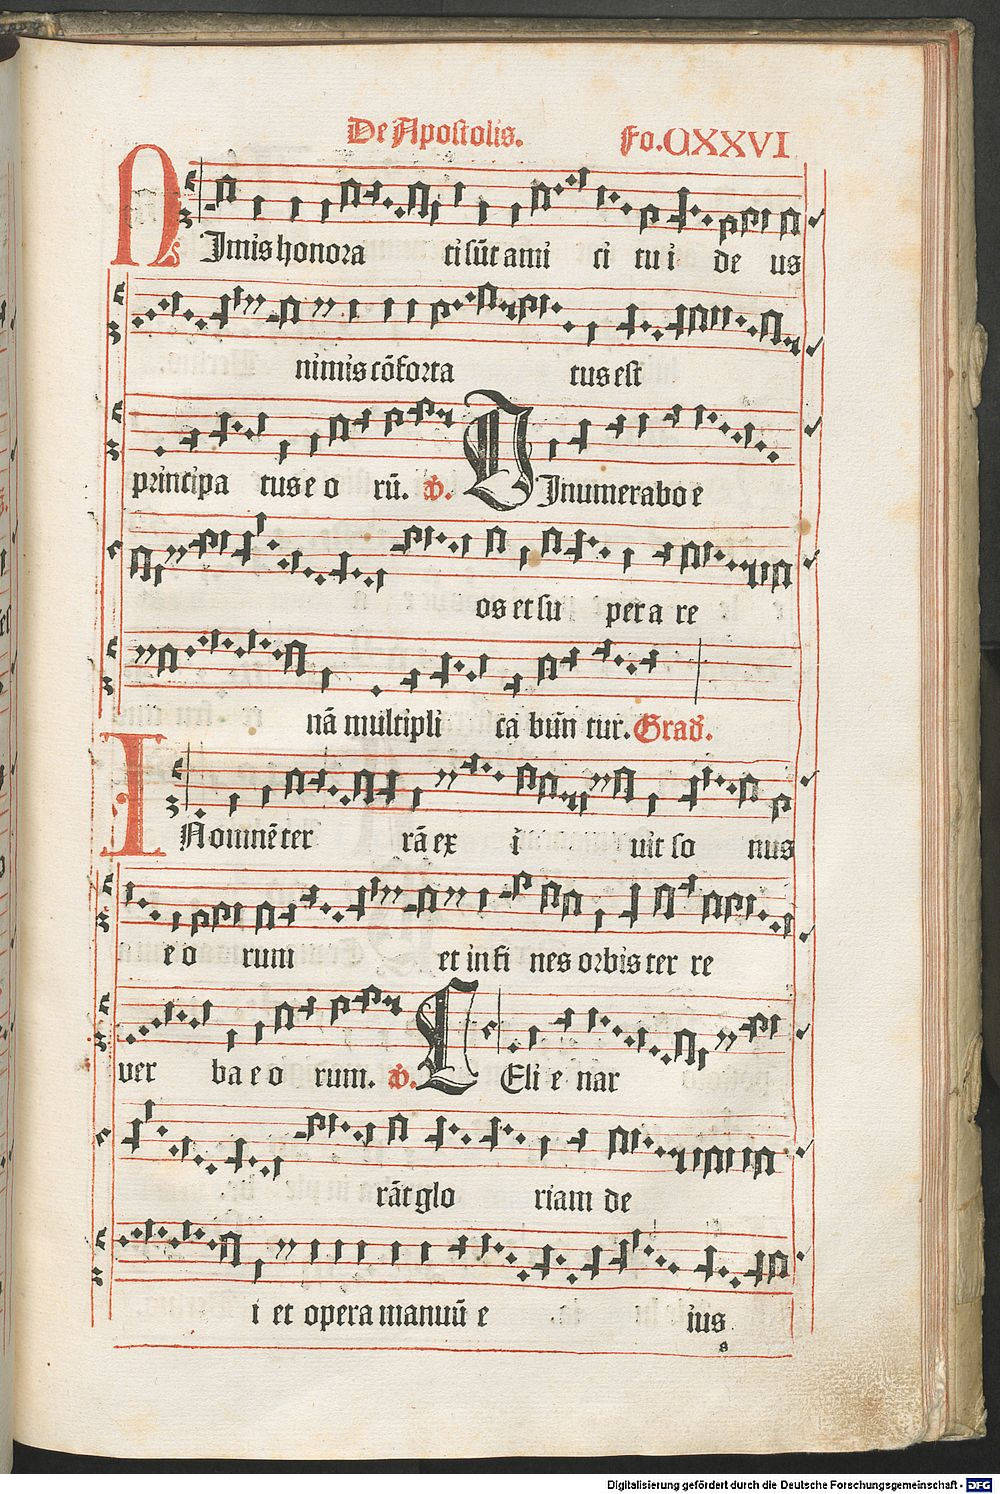 De Apostolis. Fo. CXXVI
NImis honora ti sūt ami ci tu i de us
nimis cōforta tus est
principa tus e o rū. ℣. DInumerabo e
os et su per a re
nā multipli ca būn tur. Grad̄.
IN omnē ter rā ex i uit so nus
e o rum et in fi nes orbis ter re
ver ba e o rum. ℣. CEli e nar
rāt glo riam de
i et opera manuū e ius
s
Digitalisierung gefördert durch die Deutsche Forschungsgemeinschaft - DFG